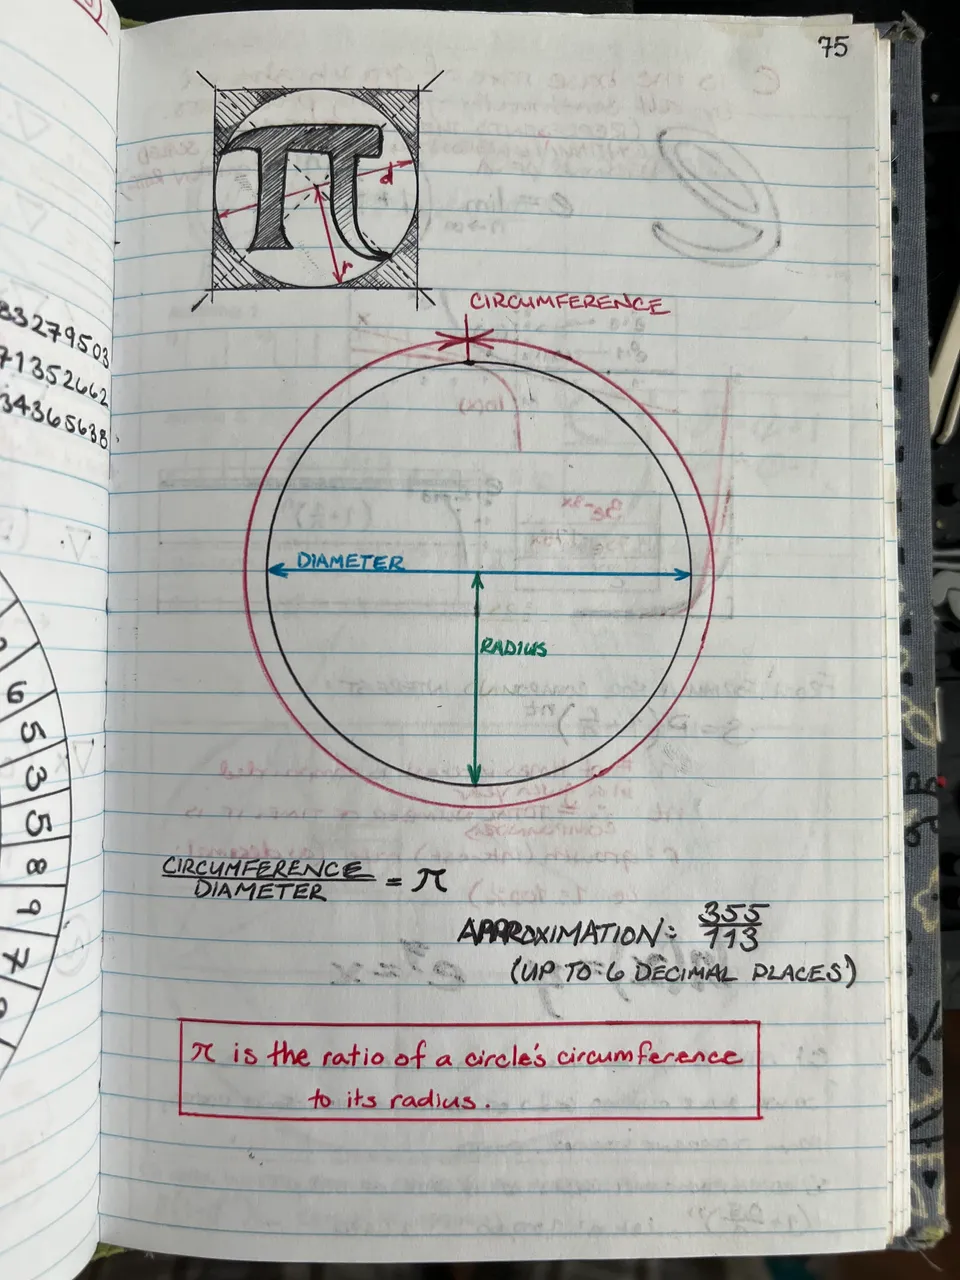 75
π
d
r
83279503
71352662
34365638
CIRCUMFERENCE
DIAMETER
RADIUS
6
5
3
5
8
9
7
CIRCUMFERENCE
DIAMETER
= π
APPROXIMATION: 355
113
(UP TO 6 DECIMAL PLACES)
π is the ratio of a circle's circumference
to its radius.